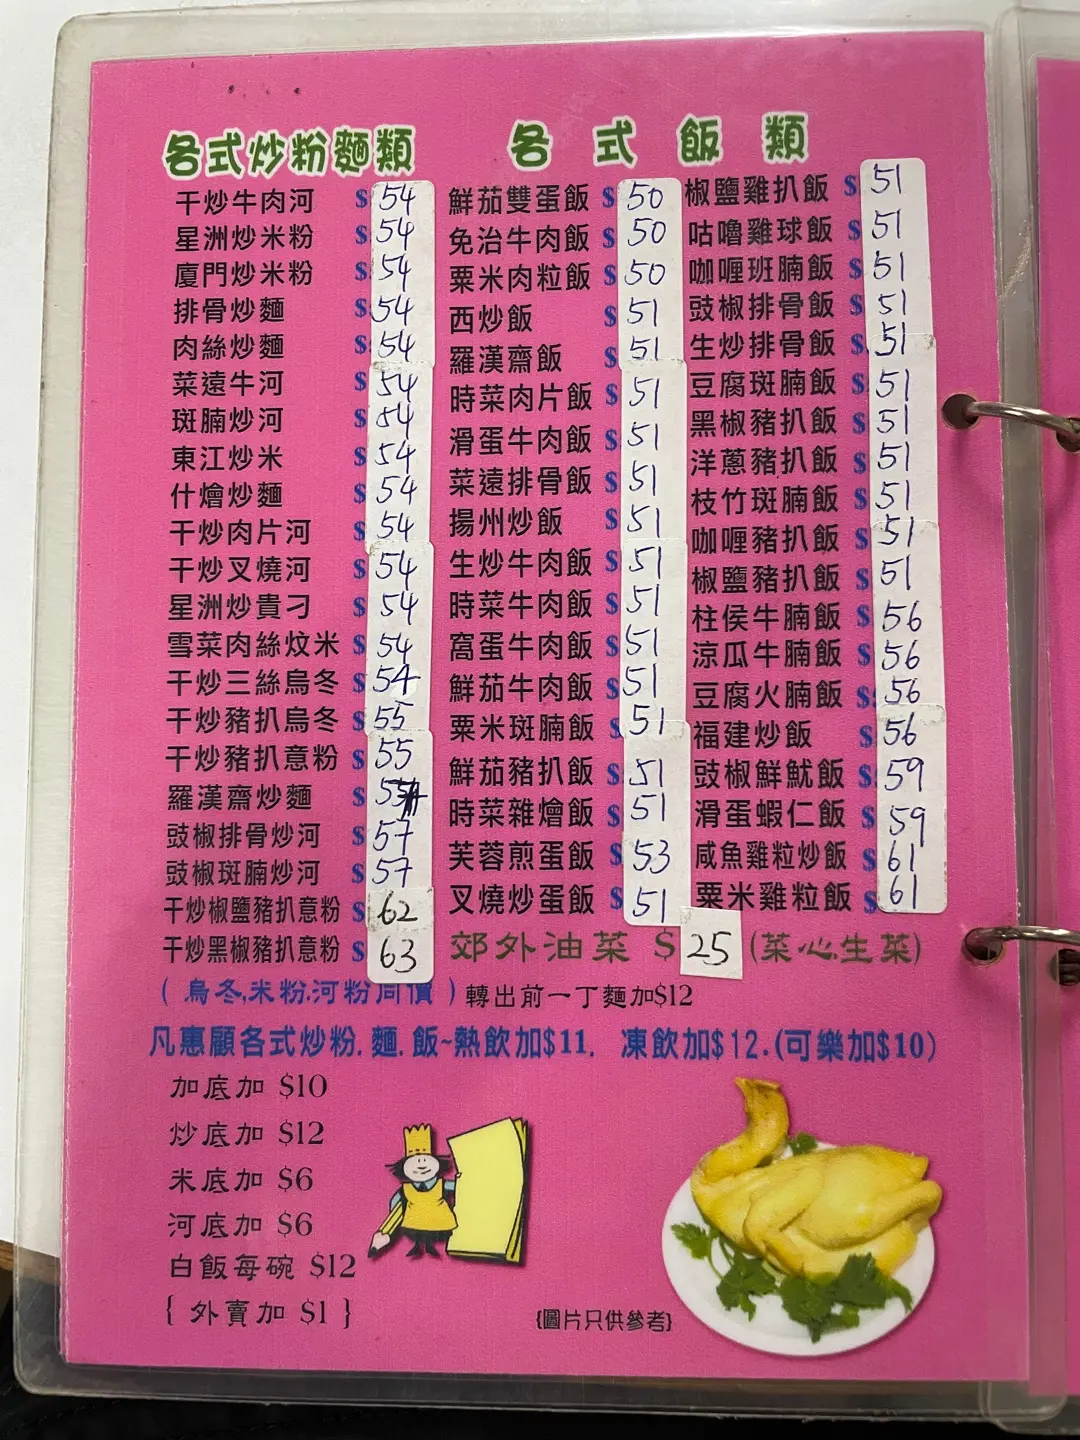 各式炒粉麵類
干炒牛肉河 $ 54
星洲炒米粉 $ 54
廈門炒米粉 $ 54
排骨炒麵 $ 54
肉絲炒麵 $ 54
菜遠牛河 $ 54
斑腩炒河 $ 54
東江炒米 $ 54
什燴炒麵 $ 54
干炒肉片河 $ 54
干炒叉燒河 $ 54
星洲炒貴刁 $ 54
雪菜肉絲炆米 $ 54
干炒三絲烏冬 $ 54
干炒豬扒烏冬 $ 55
干炒豬扒意粉 $ 55
羅漢齋炒麵 $
豉椒排骨炒河 $ 57
豉椒斑腩炒河 $ 57
干炒椒鹽豬扒意粉 $ 62
干炒黑椒豬扒意粉 $ 63
(烏冬,米粉.河粉同價)
各式飯類
鮮茄雙蛋飯 $ 50
免治牛肉飯 $ 50
粟米肉粒飯 $ 50
西炒飯 $ 51
羅漢齋飯 $ 51
時菜肉片飯 $ 51
滑蛋牛肉飯 $ 51
菜遠排骨飯 $ 51
揚州炒飯 $ 51
生炒牛肉飯 $ 51
時菜牛肉飯 $ 51
窩蛋牛肉飯 $ 51
鮮茄牛肉飯 $ 51
粟米斑腩飯 $ 51
鮮茄豬扒飯 $ 51
時菜雜燴飯 $ 51
芙蓉煎蛋飯 $ 53
叉燒炒蛋飯 $ 51
椒鹽雞扒飯 $ 51
咕嚕雞球飯 $ 51
咖喱班腩飯 $ 51
豉椒排骨飯 $ 51
生炒排骨飯 $ 51
豆腐斑腩飯 $ 51
黑椒豬扒飯 $ 51
洋蔥豬扒飯 $ 51
枝竹斑腩飯 $ 51
咖喱豬扒飯 $ 51
椒鹽豬扒飯 $ 51
柱侯牛腩飯 $ 56
涼瓜牛腩飯 $ 56
豆腐火腩飯 $ 56
福建炒飯 $ 56
豉椒鮮魷飯 $ 59
滑蛋蝦仁飯 $ 59
咸魚雞粒炒飯 $ 61
粟米雞粒飯 $ 61
郊外油菜 $ 25 (菜心.生菜)
轉出前一丁麵加$12
凡惠顧各式炒粉.麵.飯~熱飲加$11. 凍飲加$12.(可樂加$10)
加底加 $10
炒底加 $12
米底加 $6
河底加 $6
白飯每碗 $12
{ 外賣加 $1 }
{圖片只供參考}